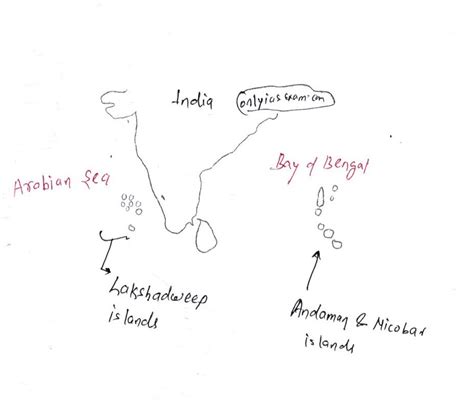 India
onlyiasexam.com
Bay of Bengal
Arabian Sea
Lakshadweep
islands
Andaman & Nicobar
islands